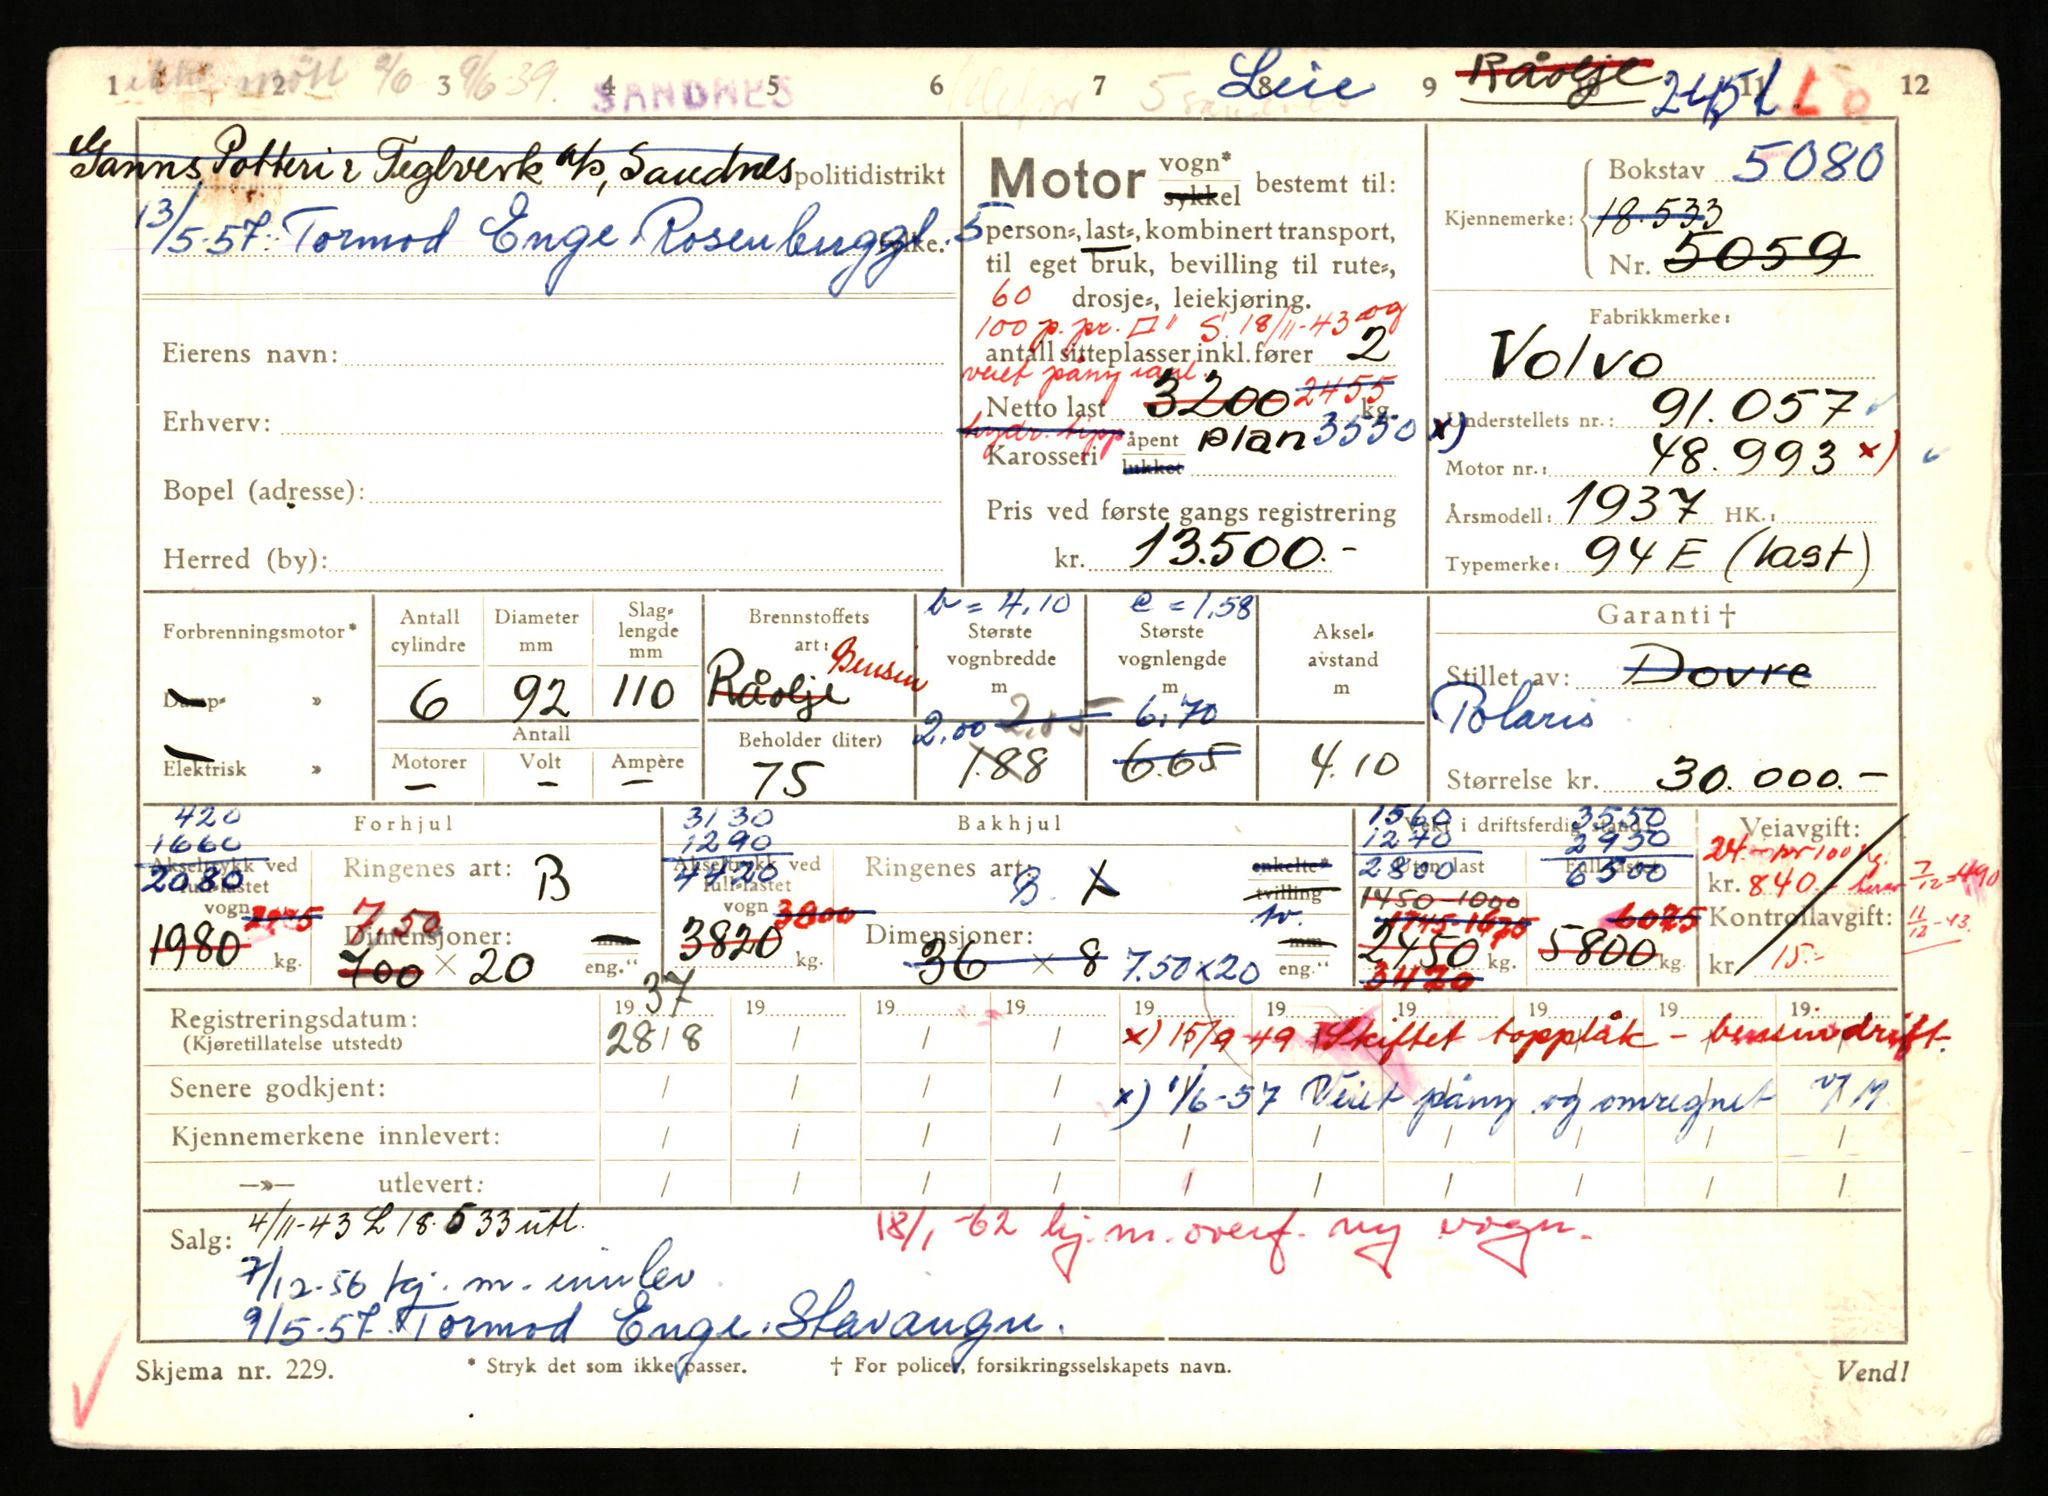 1 2 3 4 5 6 7 8 9 10 11 12
9/6-39. SANDNES Leie Råolje
Ganns Potteri & Teglverk a/s, Sandnes politidistrikt
13/5-57. Tormod Enge. Rosenbergg. 5
Motor vogn* sykkel bestemt til:
person=, last=, kombinert transport,
til eget bruk, bevilling til rute=,
drosje=, leiekjøring.
60
100 p. pr. □" S. 18/11-43 og
antall sitteplasser inkl. fører 2
veiet påny
Netto last 3200 2455 kg.
hydr. tipp
Karosseri åpent lukket plan 3550 x)
Pris ved første gangs registrering
kr. 13.500.-
Kjennemerke: Bokstav 5080
18.533
Nr. 5059
Fabrikkmerke:
Volvo
Understellets nr.: 91.057
Motor nr.: 48.993 x)
Årsmodell: 1937 HK.:
Typemerke: 94 E (last)
Eierens navn:
Erhverv:
Bopel (adresse):
Herred (by):
Forbrenningsmotor*
Damp= »
Elektrisk »
Antall cylindre 6
Diameter mm 92
Slag= lengde mm 110
Antall
Motorer – Volt – Ampère –
Brennstoffets art: Råolje Bensin
Beholder (liter) 75
b = 4.10
Største vognbredde m
2.00 2.05
1.88
c = 1.58
Største vognlengde m
6.70
6.65
Aksel= avstand m
4.10
Garanti †
Stillet av: Dovre
Polaris
Størrelse kr. 30.000.-
Forhjul
420
1660
2080
Akseltrykk ved full-lastet vogn
1980 kg.
Ringenes art: B
7,50
Dimensjoner: 700 × 20 mm eng."
Bakhjul
3130
1290
4420
Akseltrykk ved full-lastet vogn 3800
3820 kg.
Ringenes art: B L enkelte* tvilling
tv.
Dimensjoner: 36 × 8 7.50 x 20 mm eng."
Vekt i driftsferdig stand:
1560
1270
2800
Uten last
1450-1000
1745-1675
2450 kg.
3420
3550
2950
6500
Full-lastet
6025
5800 kg.
Veiavgift:
24.- pr 100 kg.
kr. 840.- 7/12 = 490
Kontrollavgift: 11/12-43.
kr. 15.-
Registreringsdatum:
(Kjøretillatelse utstedt)
1937 19 19 19 19 19 19 19 19 19
28/8
x) 15/9-49 Skiftet topplåk - bensindrift.
Senere godkjent:
x) 1/6-57 Veiet påny og omregnet
Kjennemerkene innlevert:
—»— utlevert:
Salg: 4/11-43 L 18.533 utl.
18/1-62 kj. m. overf. ny vogn.
7/12-56 kj. m. innlev
9/5-57. Tormod Enge. Stavanger.
Skjema nr. 229. * Stryk det som ikke passer. † For policer, forsikringsselskapets navn. Vend!